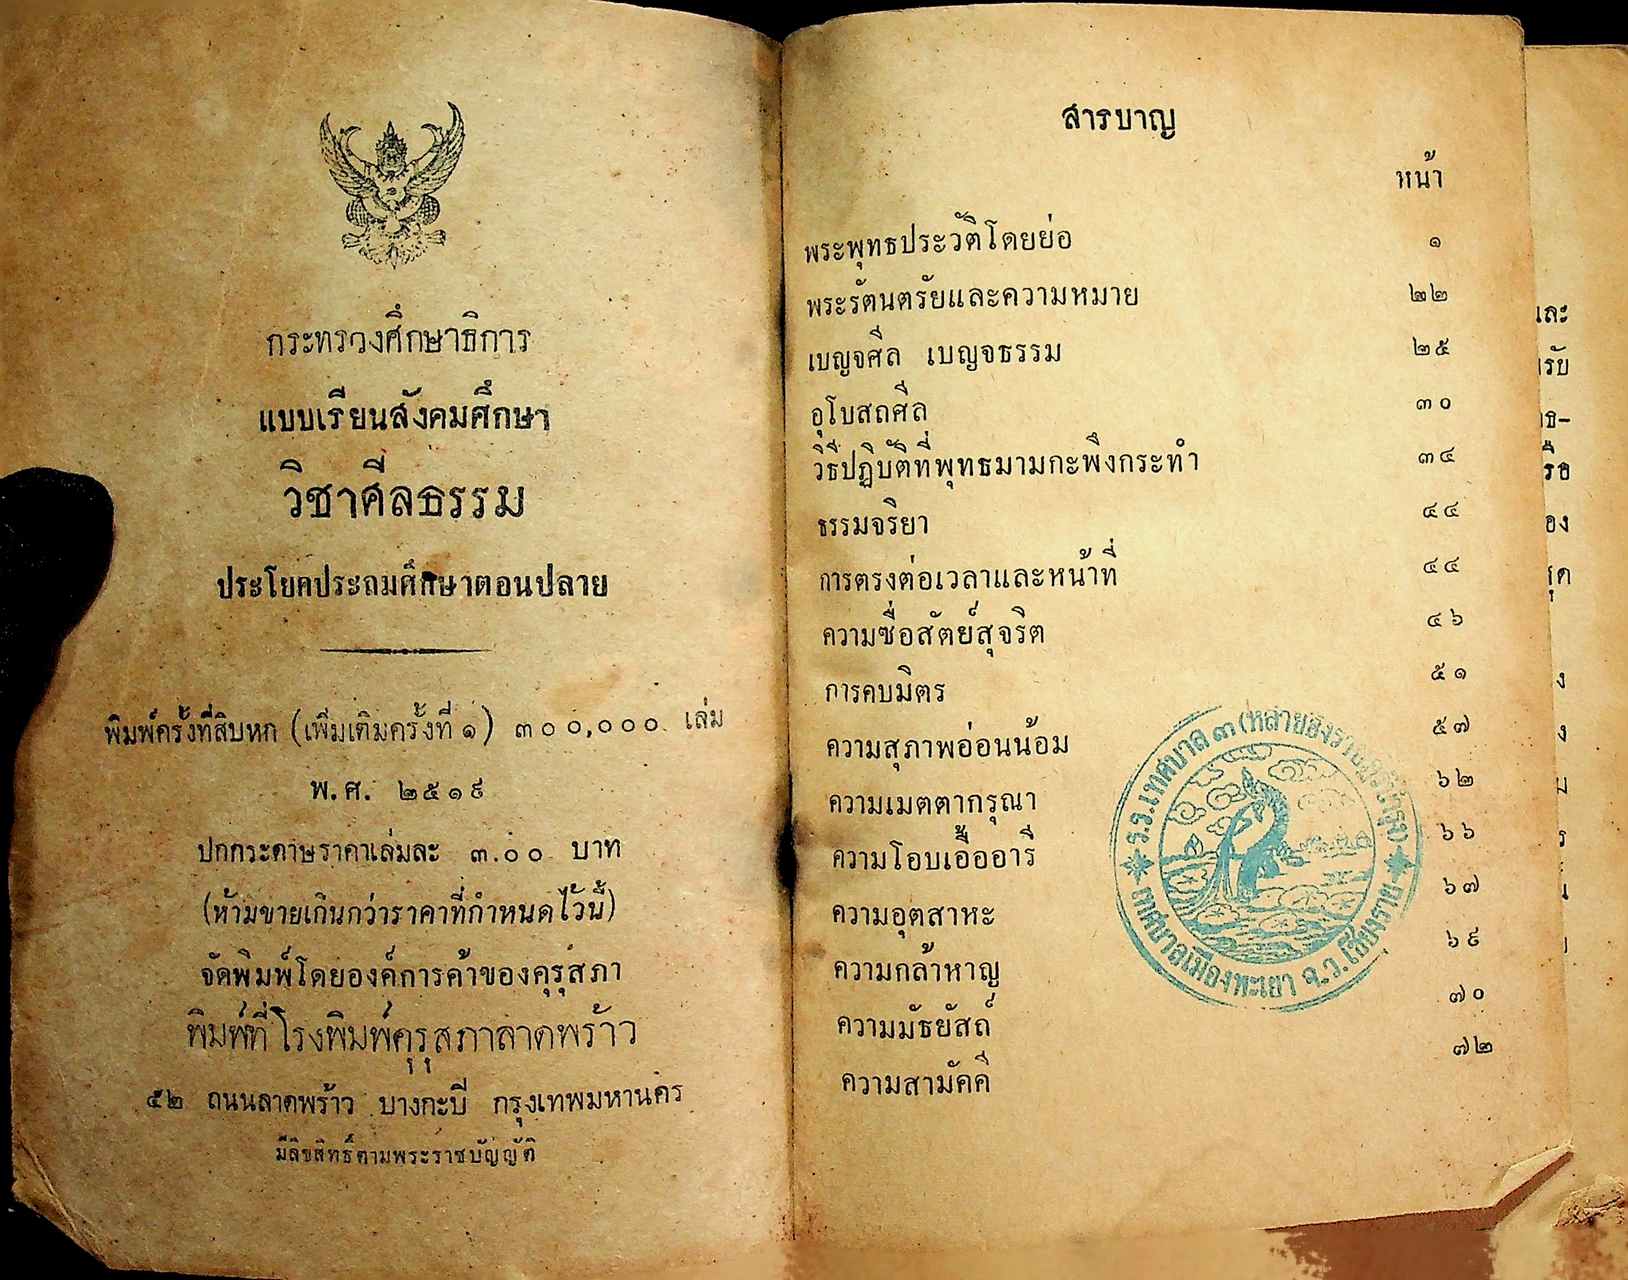 กระทรวงศึกษาธิการ
แบบเรียนสังคมศึกษา
วิชาศีลธรรม
ประโยคประถมศึกษาตอนปลาย
พิมพ์ครั้งที่สิบหก (เพิ่มเติมครั้งที่ ๑) ๓๐๐,๐๐๐ เล่ม
พ.ศ. ๒๕๑๙
ปกกระดาษราคาเล่มละ ๓.๐๐ บาท
(ห้ามขายเกินกว่าราคาที่กำหนดไว้นี้)
จัดพิมพ์โดยองค์การค้าของคุรุสภา
พิมพ์ที่โรงพิมพ์คุรุสภาลาดพร้าว
๕๒ ถนนลาดพร้าว บางกะปี กรุงเทพมหานคร
มีลิขสิทธิ์ตามพระราชบัญญัติ
สารบาญ
หน้า
พระพุทธประวัติโดยย่อ ๑
พระรัตนตรัยและความหมาย ๒๒
เบญจศีล เบญจธรรม ๒๕
อุโบสถศีล ๓๐
วิธีปฏิบัติที่พุทธมามกะพึงกระทำ ๓๔
ธรรมจริยา ๔๔
การตรงต่อเวลาและหน้าที่ ๔๔
ความซื่อสัตย์สุจริต ๔๖
การคบมิตร ๕๑
ความสุภาพอ่อนน้อม ๕๗
ความเมตตากรุณา ๖๒
ความโอบเอื้ออารี ๖๖
ความอุตสาหะ ๖๗
ความกล้าหาญ ๖๙
ความมัธยัสถ์ ๗๐
ความสามัคคี ๗๒
ร.ร.เทศบาล ๓
เทศบาลเมืองพะเยา จ.ว.เชียงราย
และ